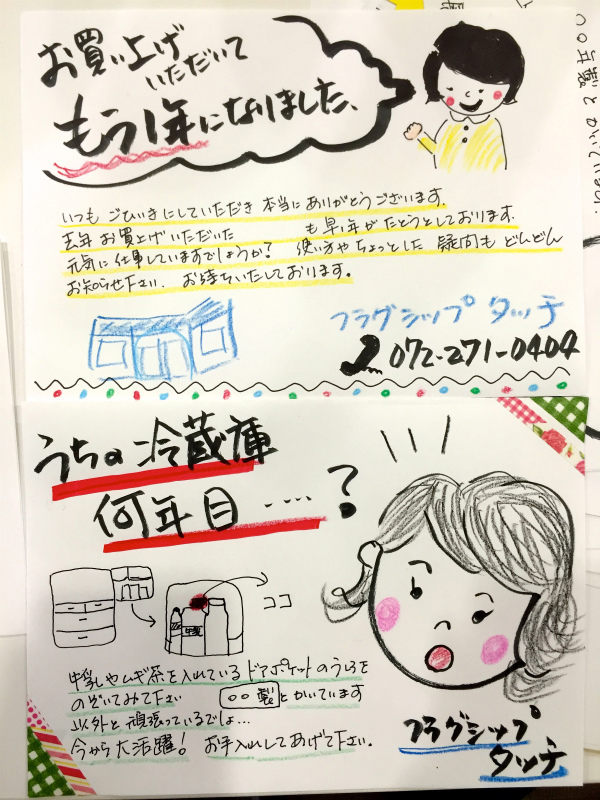 お買い上げ
いただいて
もう1年になりました、
いつも ごひいきにしていただき 本当に ありがとうございます.
去年 お買上げいただいた も早1年がたとうとしております.
元気に仕事していますでしょうか? 使い方やちょっとした 疑問も どんどん
お知らせ下さい. お待ちいたしております。
フラグシップ タッチ
072-271-0404
うちの冷蔵庫
何年目……?
ココ
牛乳
牛乳やムギ茶を入れている ドアポケットのうしろを
のぞいてみて下さい ○○製 とかいています
以外と頑張っているでしょ…
今から大活躍! お手入れしてあげて下さい。
フラグシップ
タッチ